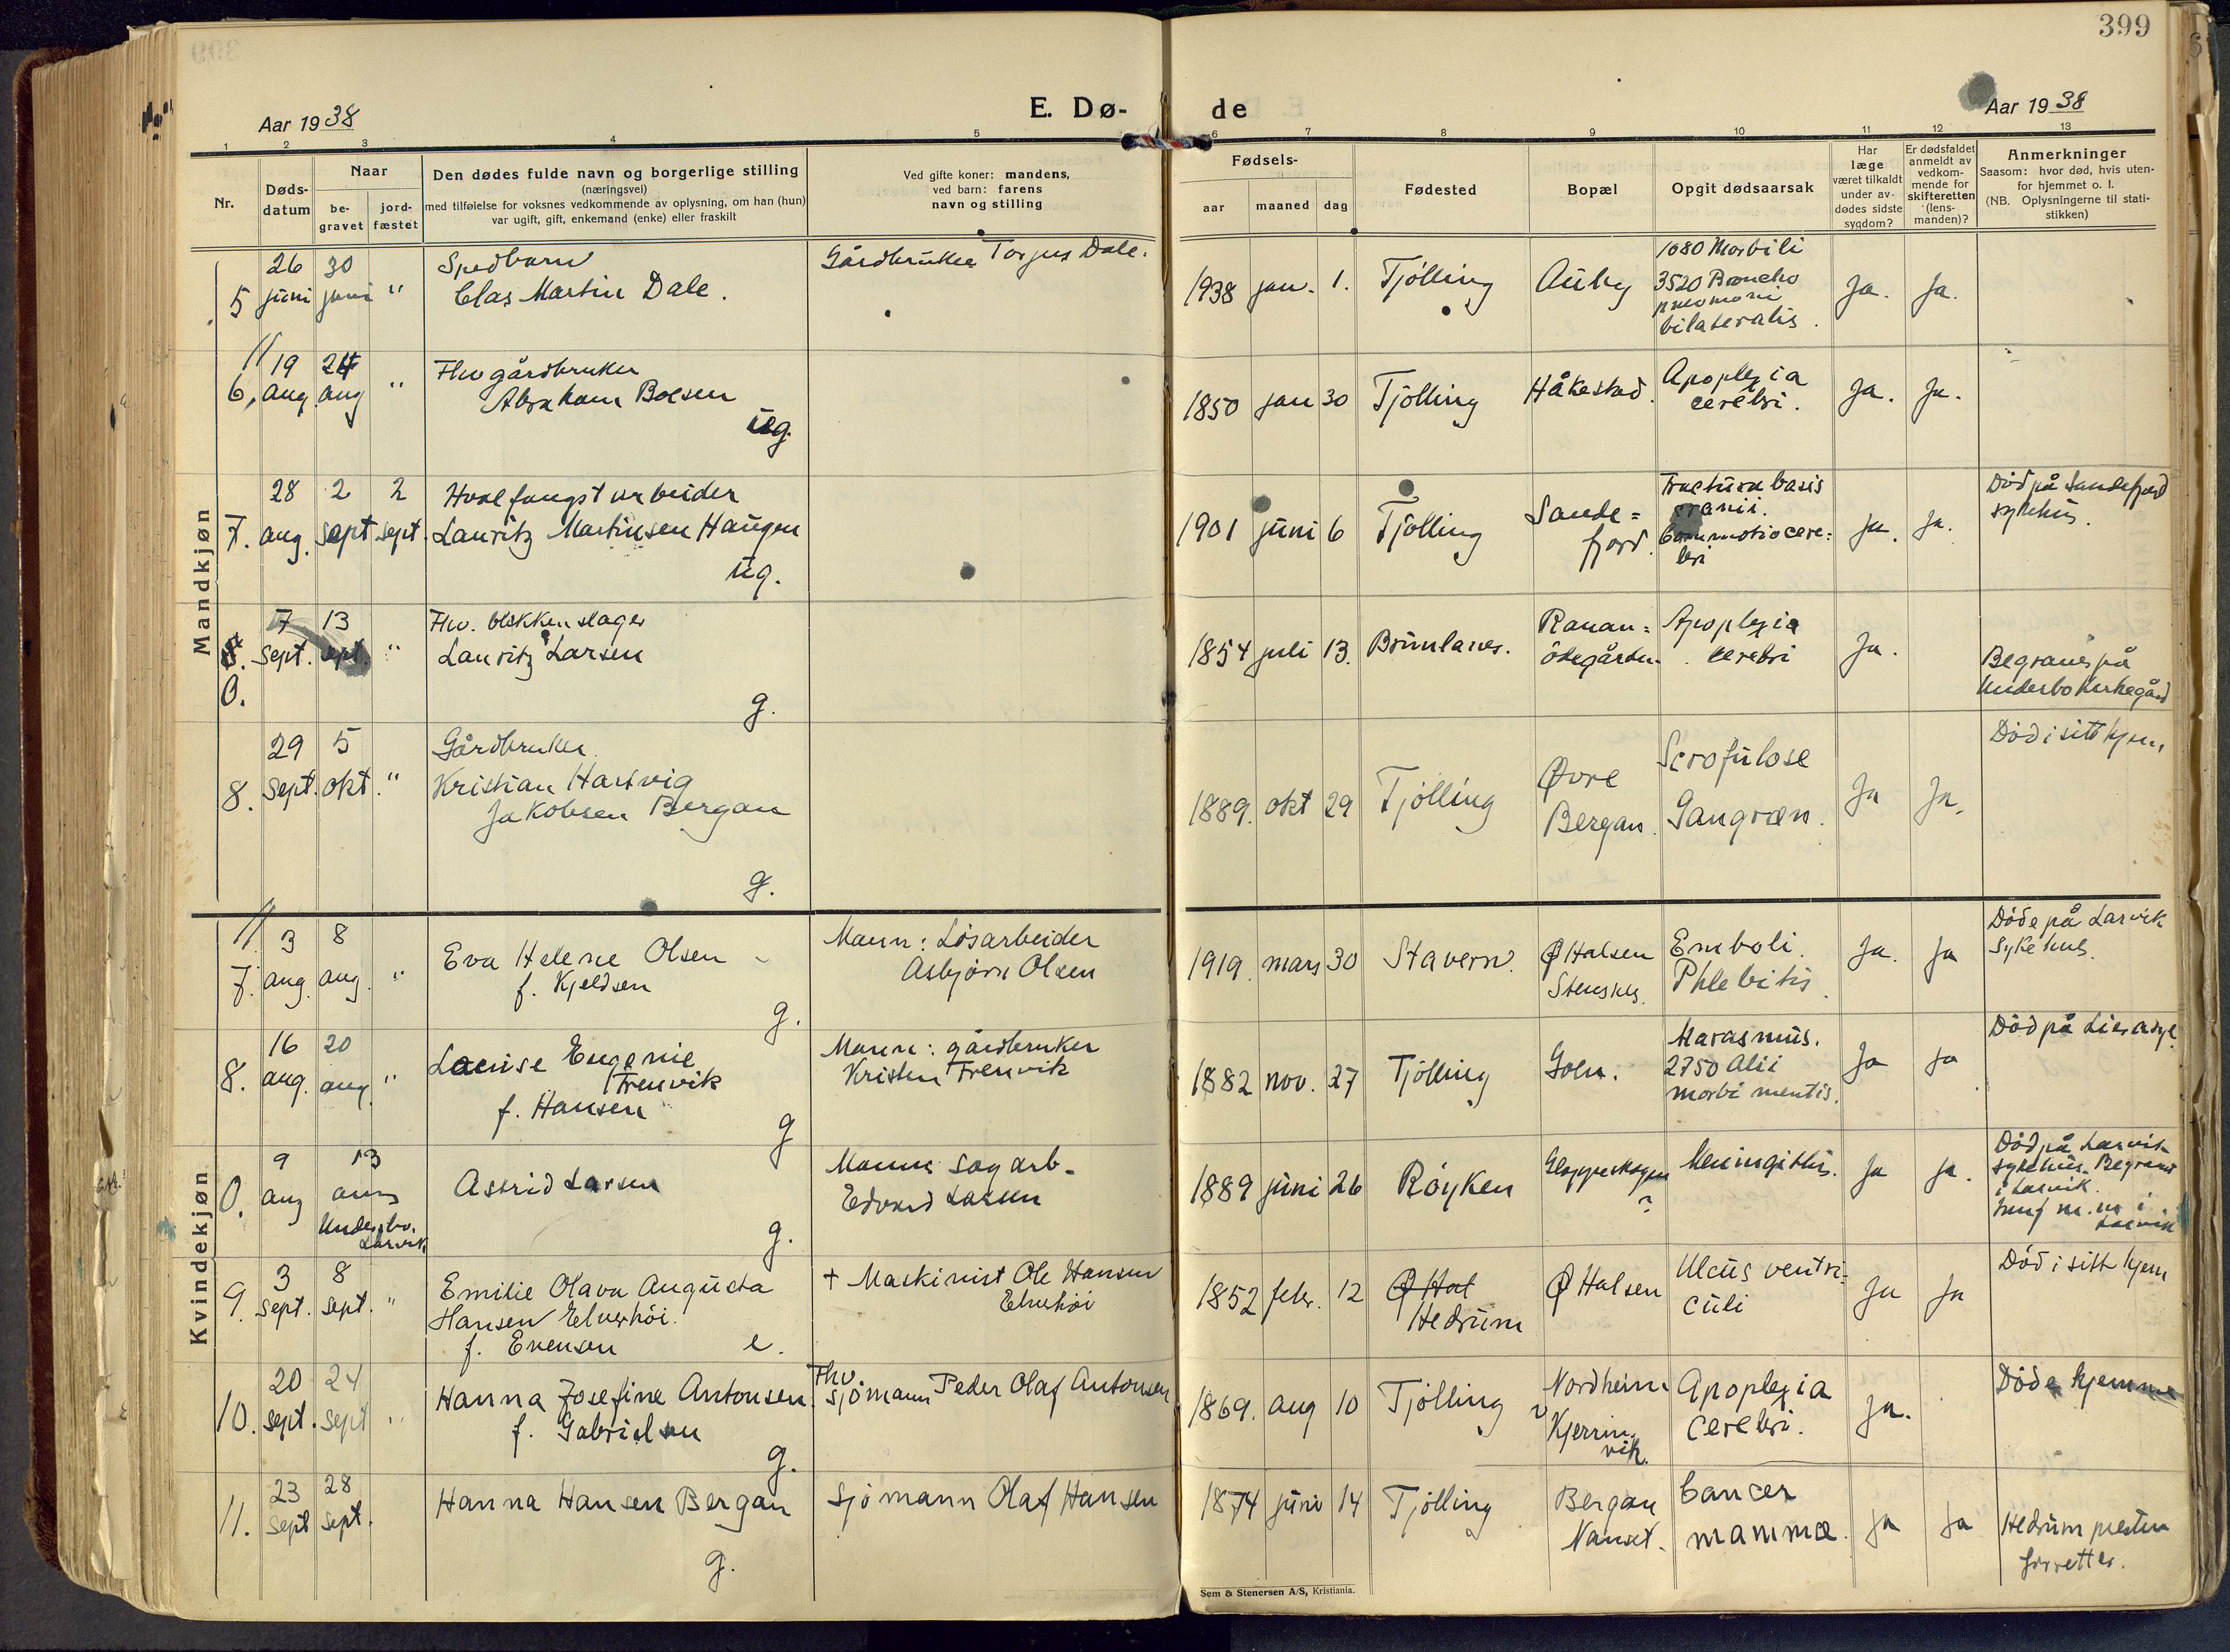 399
Aar 1938
E. Dø-
de
Aar 1938
1 2 3 4 5 6 7 8 9 10 11 12 13
Nr.
Døds-
datum
Naar
be-
gravet
jord-
fæstet
Den dødes fulde navn og borgerlige stilling
(næringsvei)
med tilføielse for voksnes vedkommende av oplysning, om han (hun)
var ugift, gift, enkemand (enke) eller fraskilt
Ved gifte koner: mandens,
ved barn: farens
navn og stilling
Fødsels-
aar maaned dag
Fødested
Bopæl
Opgit dødsaarsak
Har
læge
været tilkaldt
under av-
dødes sidste
sygdom?
Er dødsfaldet
anmeldt av
vedkom-
mende for
skifteretten
(lens-
manden)?
Anmerkninger
Saasom: hvor død, hvis uten-
for hjemmet o. l.
(NB. Oplysningerne til stati-
stikken)
Mandkjøn
5 26 juni 30 juni "
Spedbarn
Clas Martin Dale.
Gårdbruker Torjus Dale.
1938 jan. 1. Tjölling Auby
1080 Morbili
3520 Broncho
pneumoni
bilateralis.
Ja. Ja.
6. 19 aug. 24 aug "
Fhv gårdbruker
Abraham Boesen
ug.
1850 jan 30 Tjölling Håkestad.
Apoplexia
cerebri.
Ja. Ja.
7. 28 aug. 2 sept 2 sept.
Hvalfangstarbeider
Lauritz Martinsen Haugen
ug.
1901 juni 6 Tjölling
Sande=
fjord.
Fractura basis
cranii.
Commotio cere=
bri
Ja. Ja.
Död på Sandefjord
sykehus.
8. 0. 7 sept. 13 sept. "
Fhv. blikkenslager
Lauritz Larsen
g.
1854 juli 13. Brunlanes.
Ranan=
ödegården.
Apoplexia
cerebri
Ja.
Begraves på
Undersbo kirkegård
8. 29 sept. 5 okt. "
Gårdbruker
Kristian Hartvig
Jakobsen Bergan
g.
1889. okt 29 Tjölling
Øvre
Bergan.
Scrofulose
Gangræn.
Ja Ja.
Död i sitt hjem
Kvindekjøn
7. 3 aug. 8 aug. "
Eva Helene Olsen
f. Kjeldsen
g.
Mann: Lösarbeider
Asbjörn Olsen
1919. mars 30 Stavern.
Ø Halsen
Emboli.
Phlebitis.
Ja. Ja
Döde på Larvik
Sykehus.
8. 16 aug. 20 aug. "
Louise Eugenie
Frenvik
f. Hansen
g
Mann: gårdbruker
Kristen Frenvik
1882 nov. 27 Tjölling
Marasmus.
2750 Alii
morbi mentis.
Ja Ja
Död på Lier asyl.
0. 9 aug 13
Undersbo.
Larvik
Astrid Larsen
g.
Mann sagarb-
Edvard Larsen
1889 juni 26 Röyken
Gloppeskogen
?
Meningitis.
Ja Ja.
Död på Larvik
sykehus. Begravet
i Larvik.
Larvik
9. 3 sept. 8 sept. "
Emilie Olava Augusta
Hansen Elverhöi.
f. Evensen e.
+ Maskinist Ole Hansen
Elverhöi
1852 febr. 12
Ø Hal
Hedrum
Ø Halsen
Ulcus ventri=
culi
Ja Ja
Död i sitt hjem
10. 20 sept. 24 sept "
Hanna Josefine Antonsen
f. Gabrielsen
g.
Fhv.
sjömann Peder Olaf Antonsen
1869. aug 10 Tjölling
Nordheim
v
Kjerrin.
vik.
Apoplexia
Cerebri.
Ja.
Döde hjemme
11. 23 sept 28 sept.
Hanna Hansen Bergan
g.
Sjömann Olaf Hansen
1874 juni 14 Tjölling
Bergan
Nanset.
Cancer
mammæ.
Ja Ja
Hedrum presten
forretter.
Sem & Stenersen A/S, Kristiania.